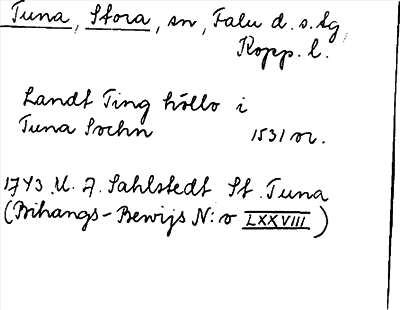 Tuna, Stora, sn, Falu d. s. tg
Kopp. l.
Landt Ting höllo i
Tuna Sochn 1531 or.
1743 U. Z. Sahlstedt St. Tuna
(Bihangs-Bewijs N:o LXXVIII)